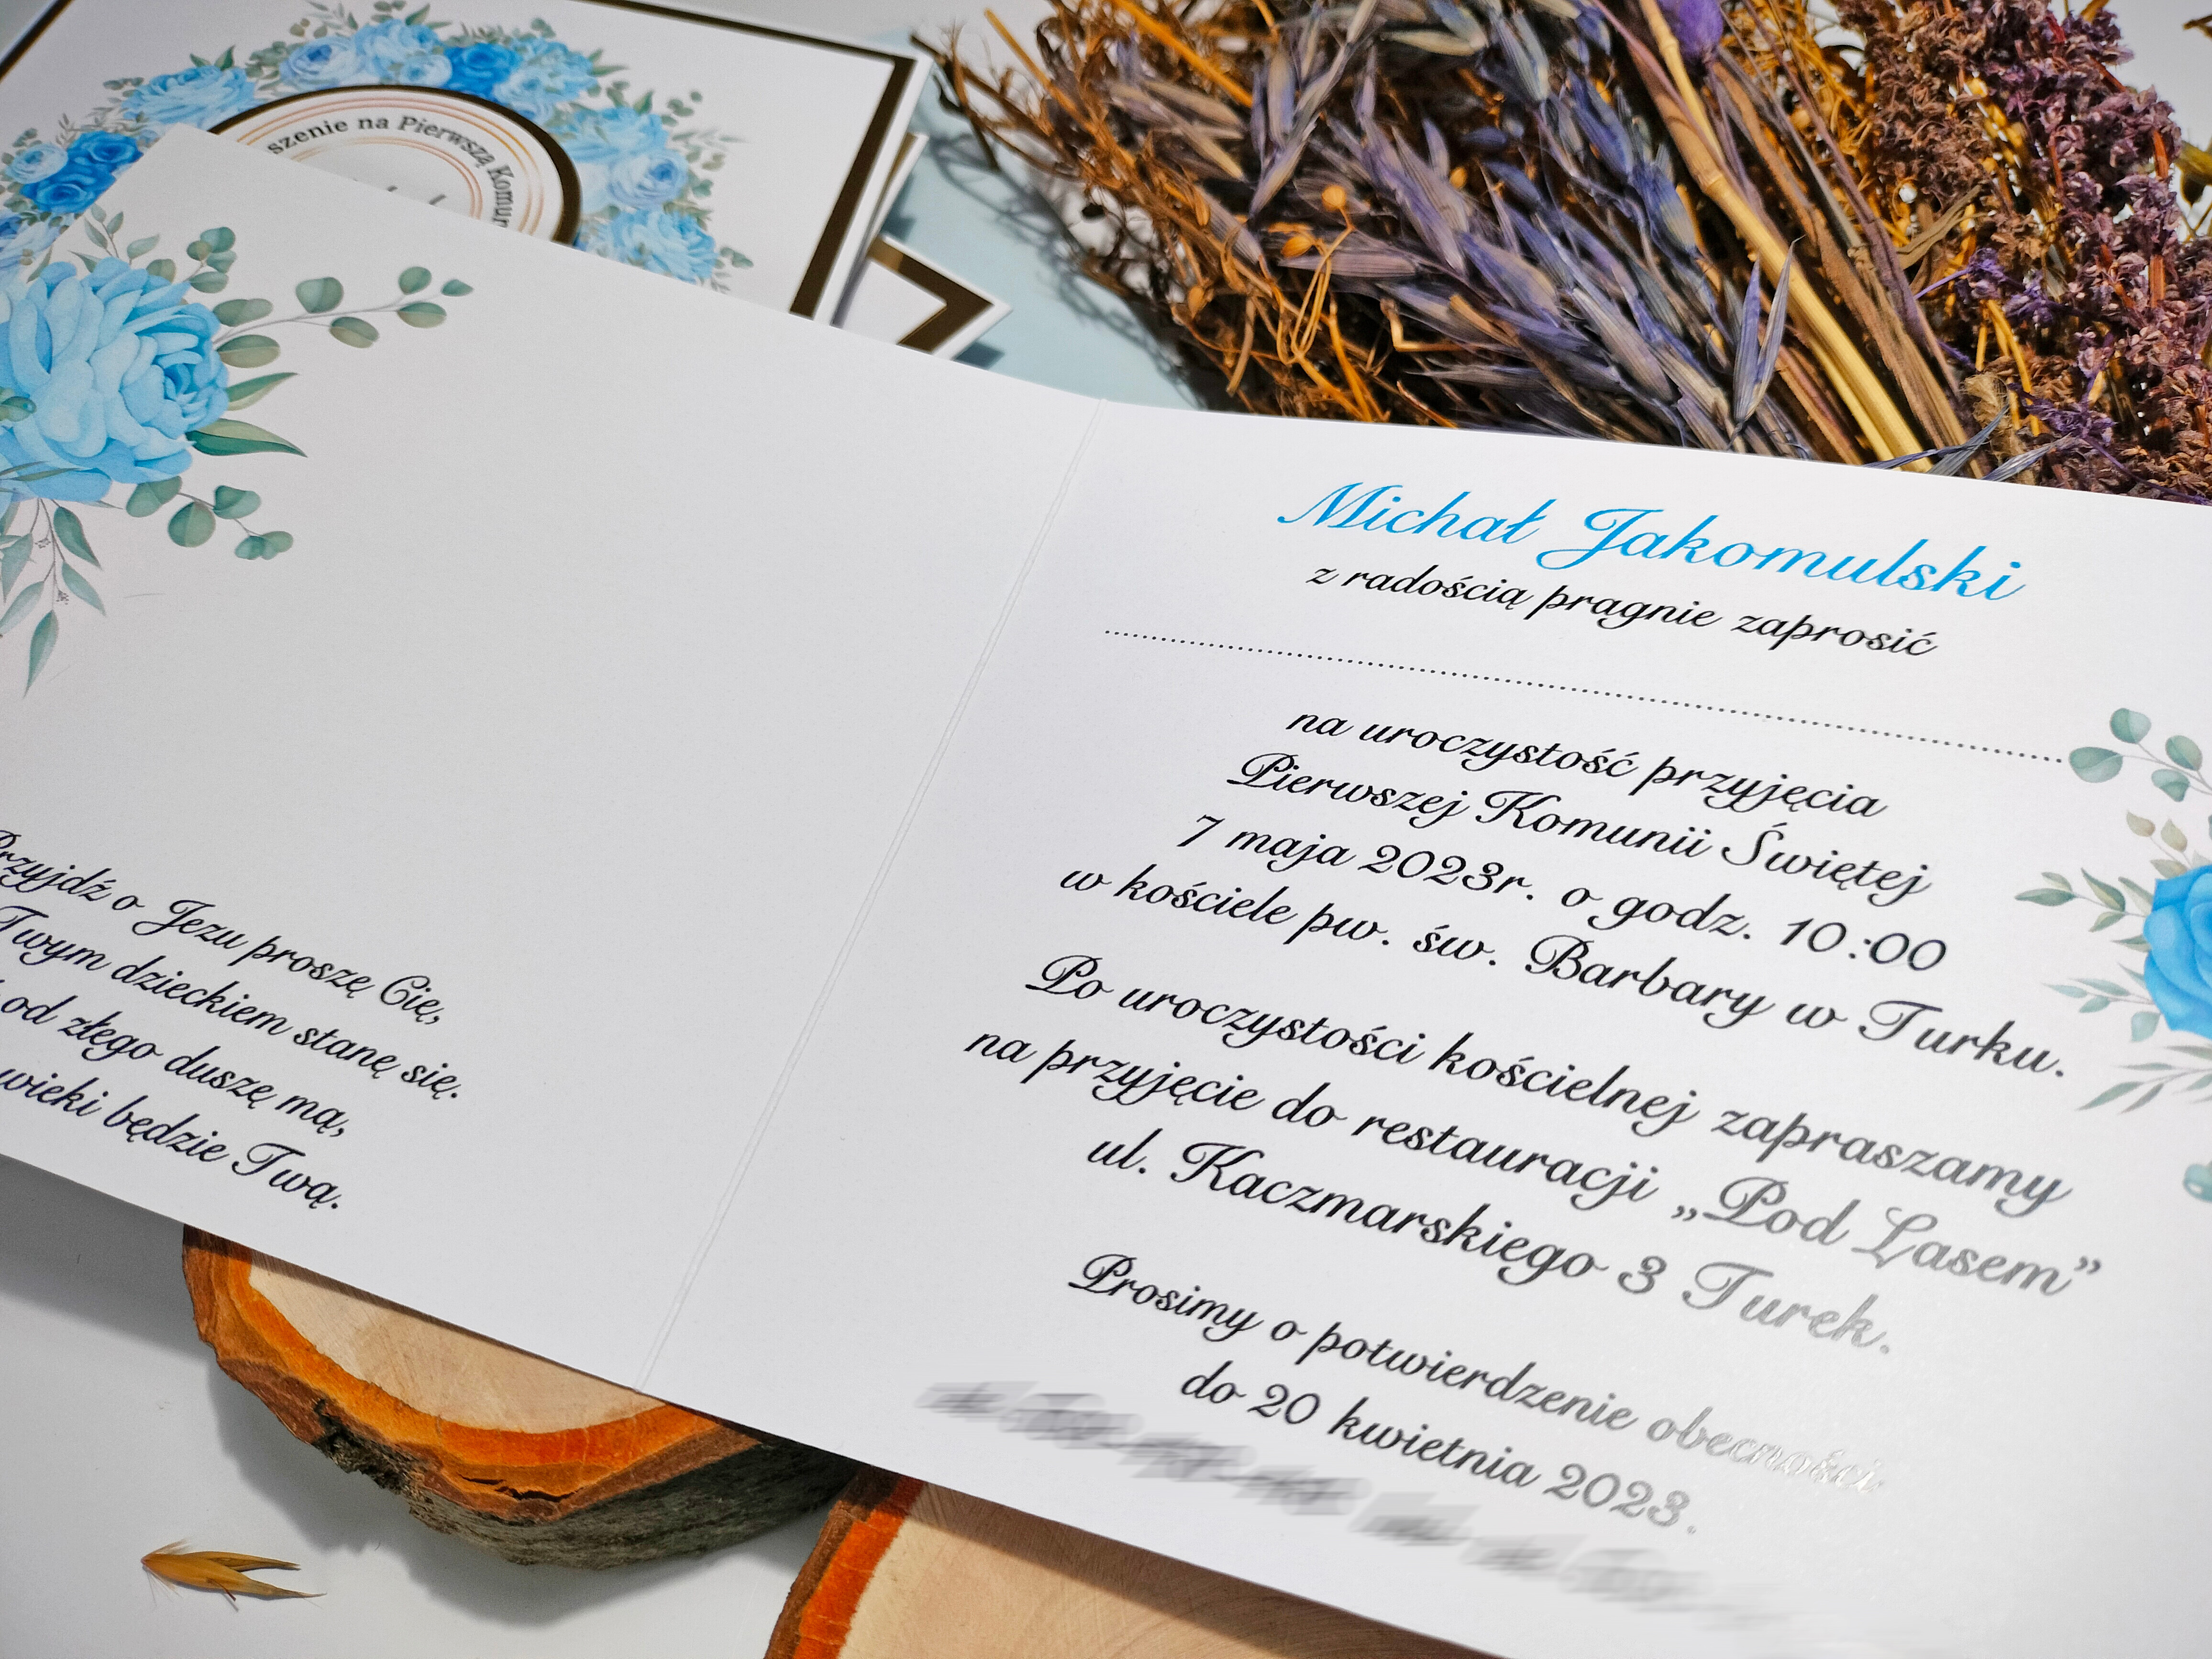 szenie na Pierwszą Komun
Przyjdź o Jezu proszę Cię,
Twym dzieckiem stanę się.
od złego duszę mą,
wieki będzie Twą.
Michał Jakomulski
z radością pragnie zaprosić
na uroczystość przyjęcia
Pierwszej Komunii Świętej
7 maja 2023r. o godz. 10:00
w kościele pw. św. Barbary w Turku.
Po uroczystości kościelnej zapraszamy
na przyjęcie do restauracji „Pod Lasem”
ul. Kaczmarskiego 3 Turek.
Prosimy o potwierdzenie obecności
do 20 kwietnia 2023.